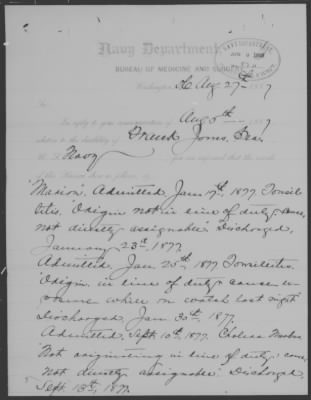 Navy Department,
BUREAU OF MEDICINE AND SURGERY,
Washington, Aug 27th 1887
Sir:
In reply to your communication of Aug 5th 1887
relative to the disability of
Navy
"Marion". Admitted Jan 17th 1877. Tonsil-
litis. Origin not in line of duty; cause
not directly assignable. Discharged,
January 23d 1877.
Admitted, Jan. 25th 1877 Tonsilitis.
Origin in line of duty; cause ex-
posure when on watch last night.
Discharged Jan. 30th 1877.
Admitted, Sept. 10th 1877. Cholera Morbus
Not originating in line of duty; cause
not directly assignable. Discharged,
Sept. 13th, 1877.